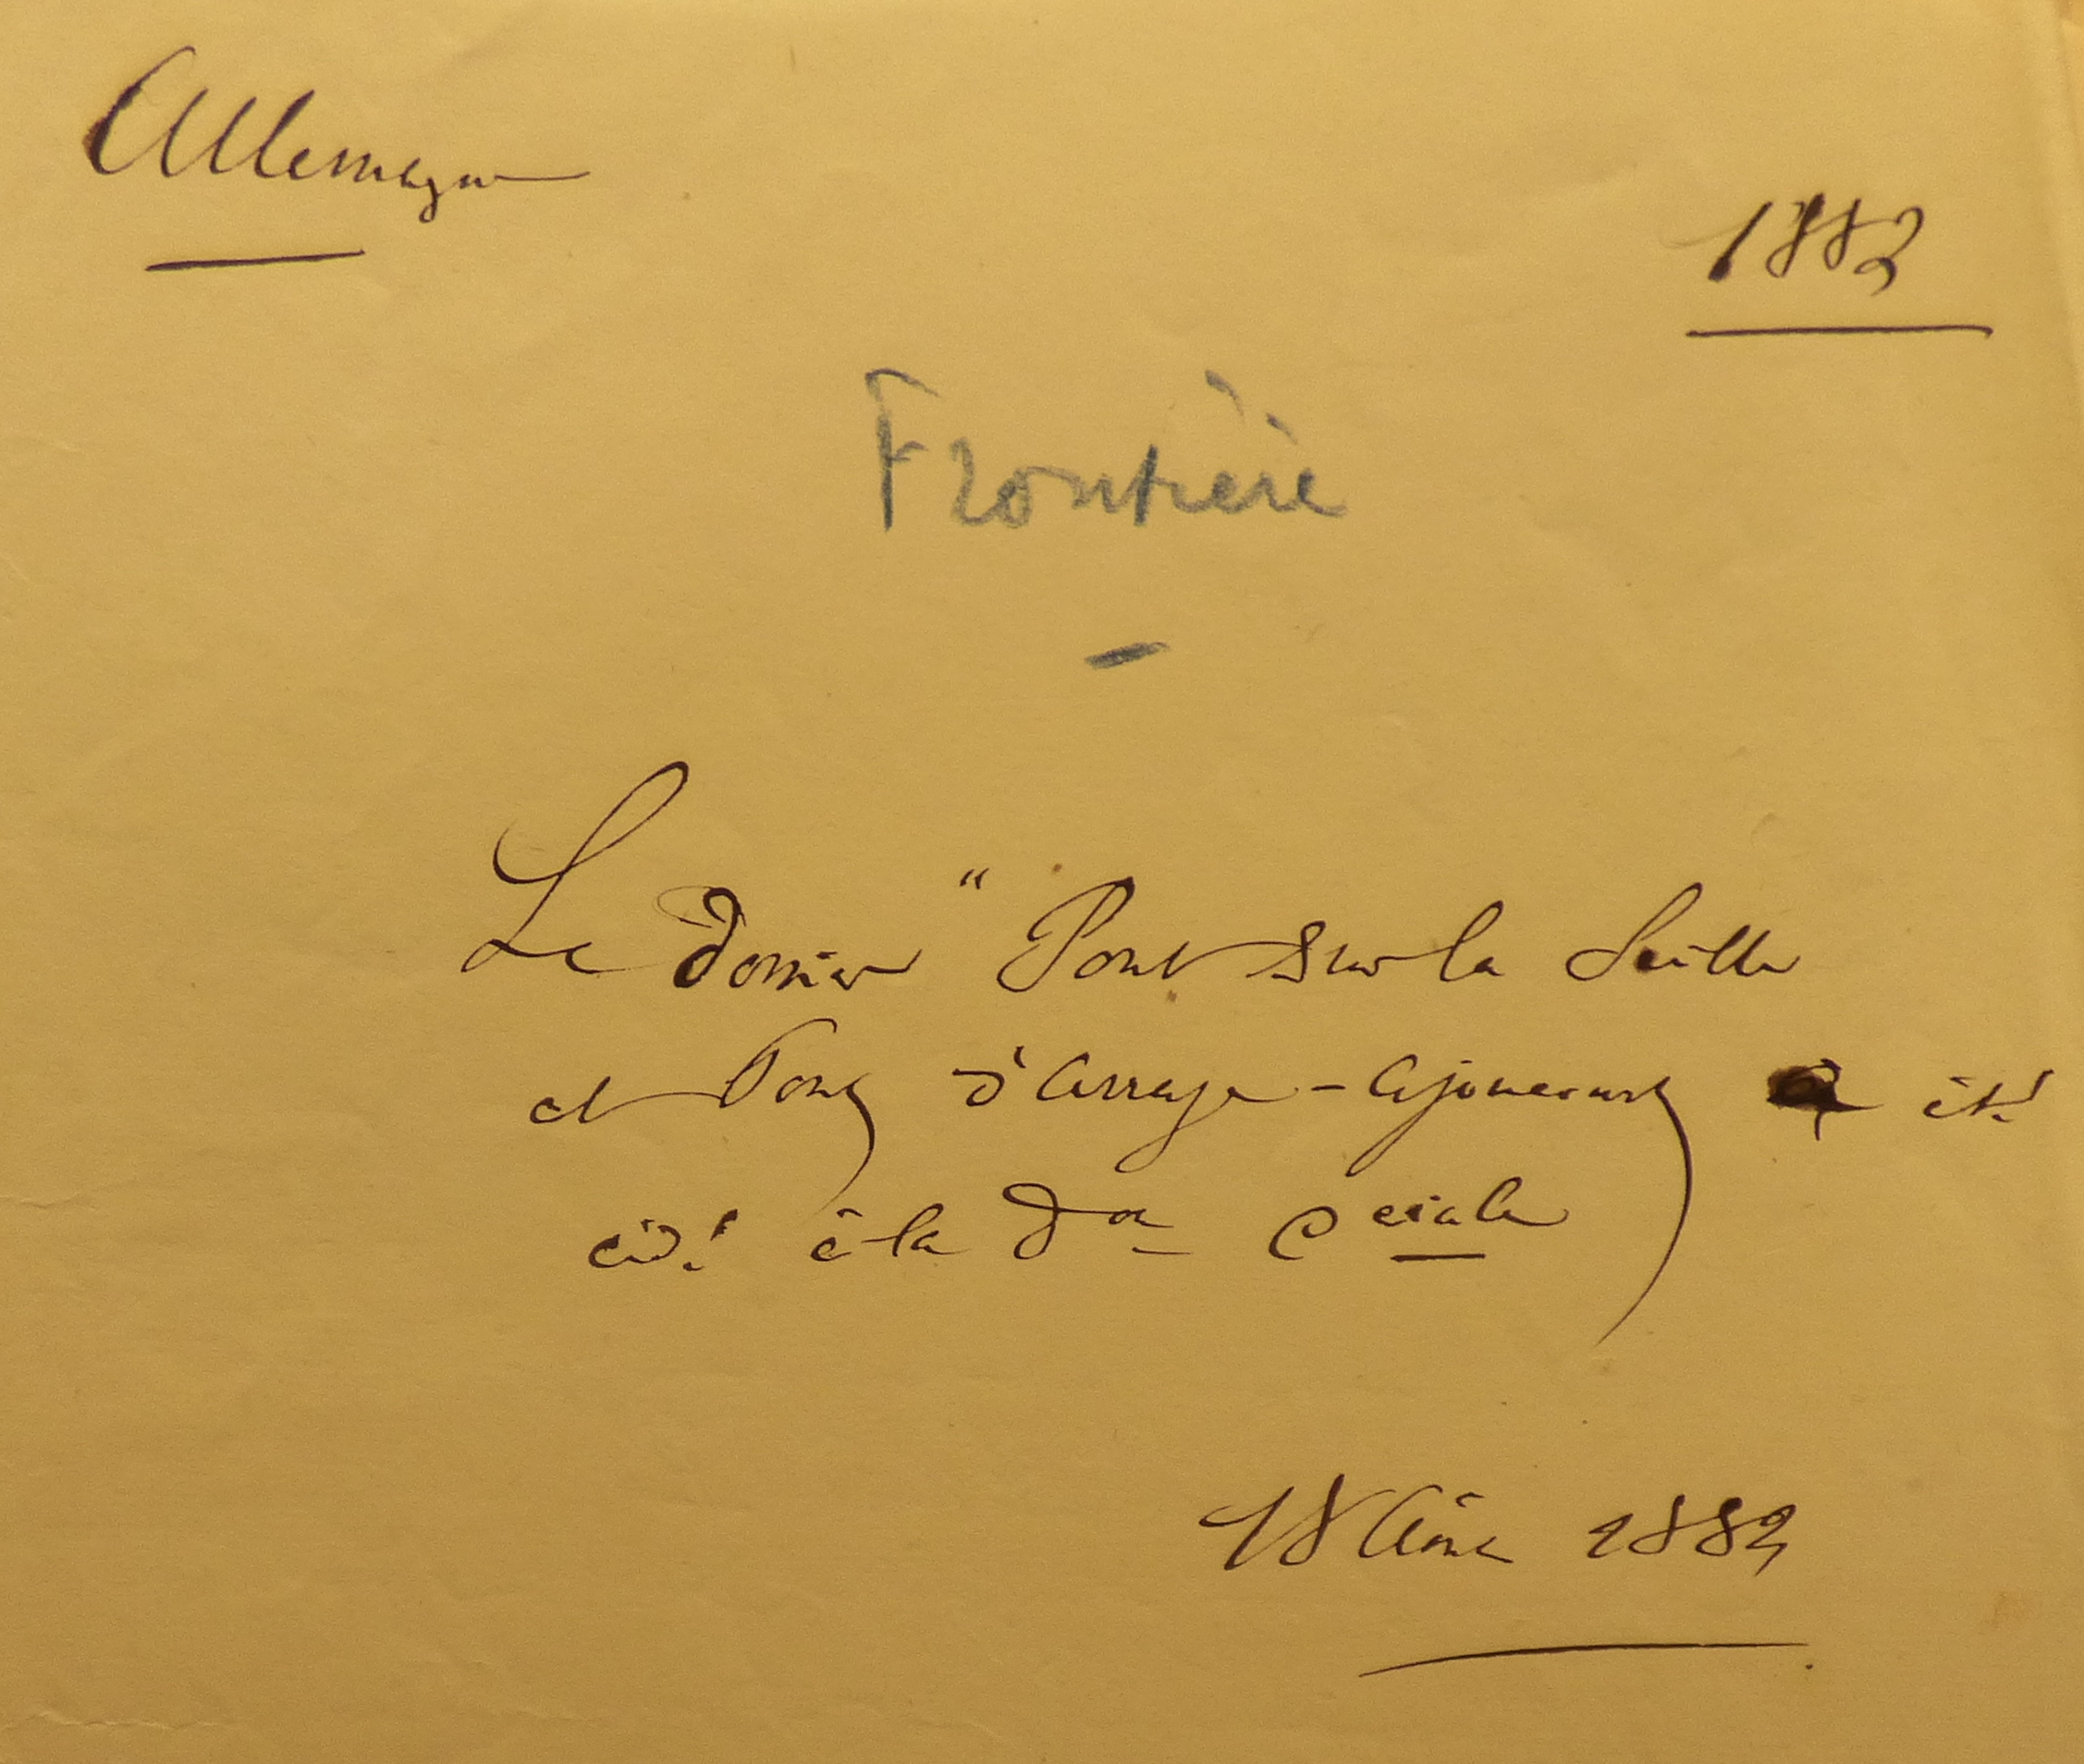 Allemagne
1882
Frontière
Le dossier "Pont sur la Seille
et Pont d'Arraye-Ajoncourt a été
cédé à la Don Cciale
18 Aout 1882